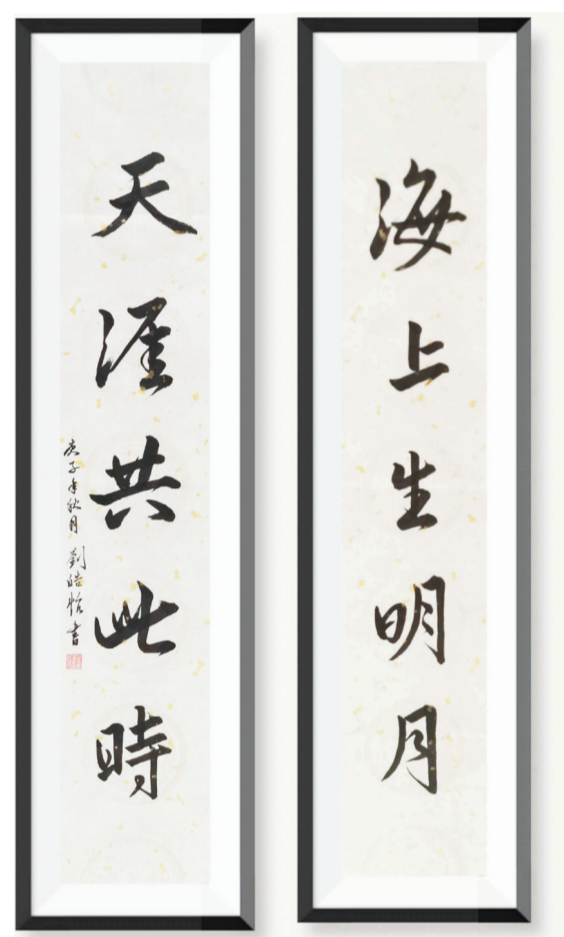 海上生明月
天涯共此時
庚子年秋月 劉皓怡書